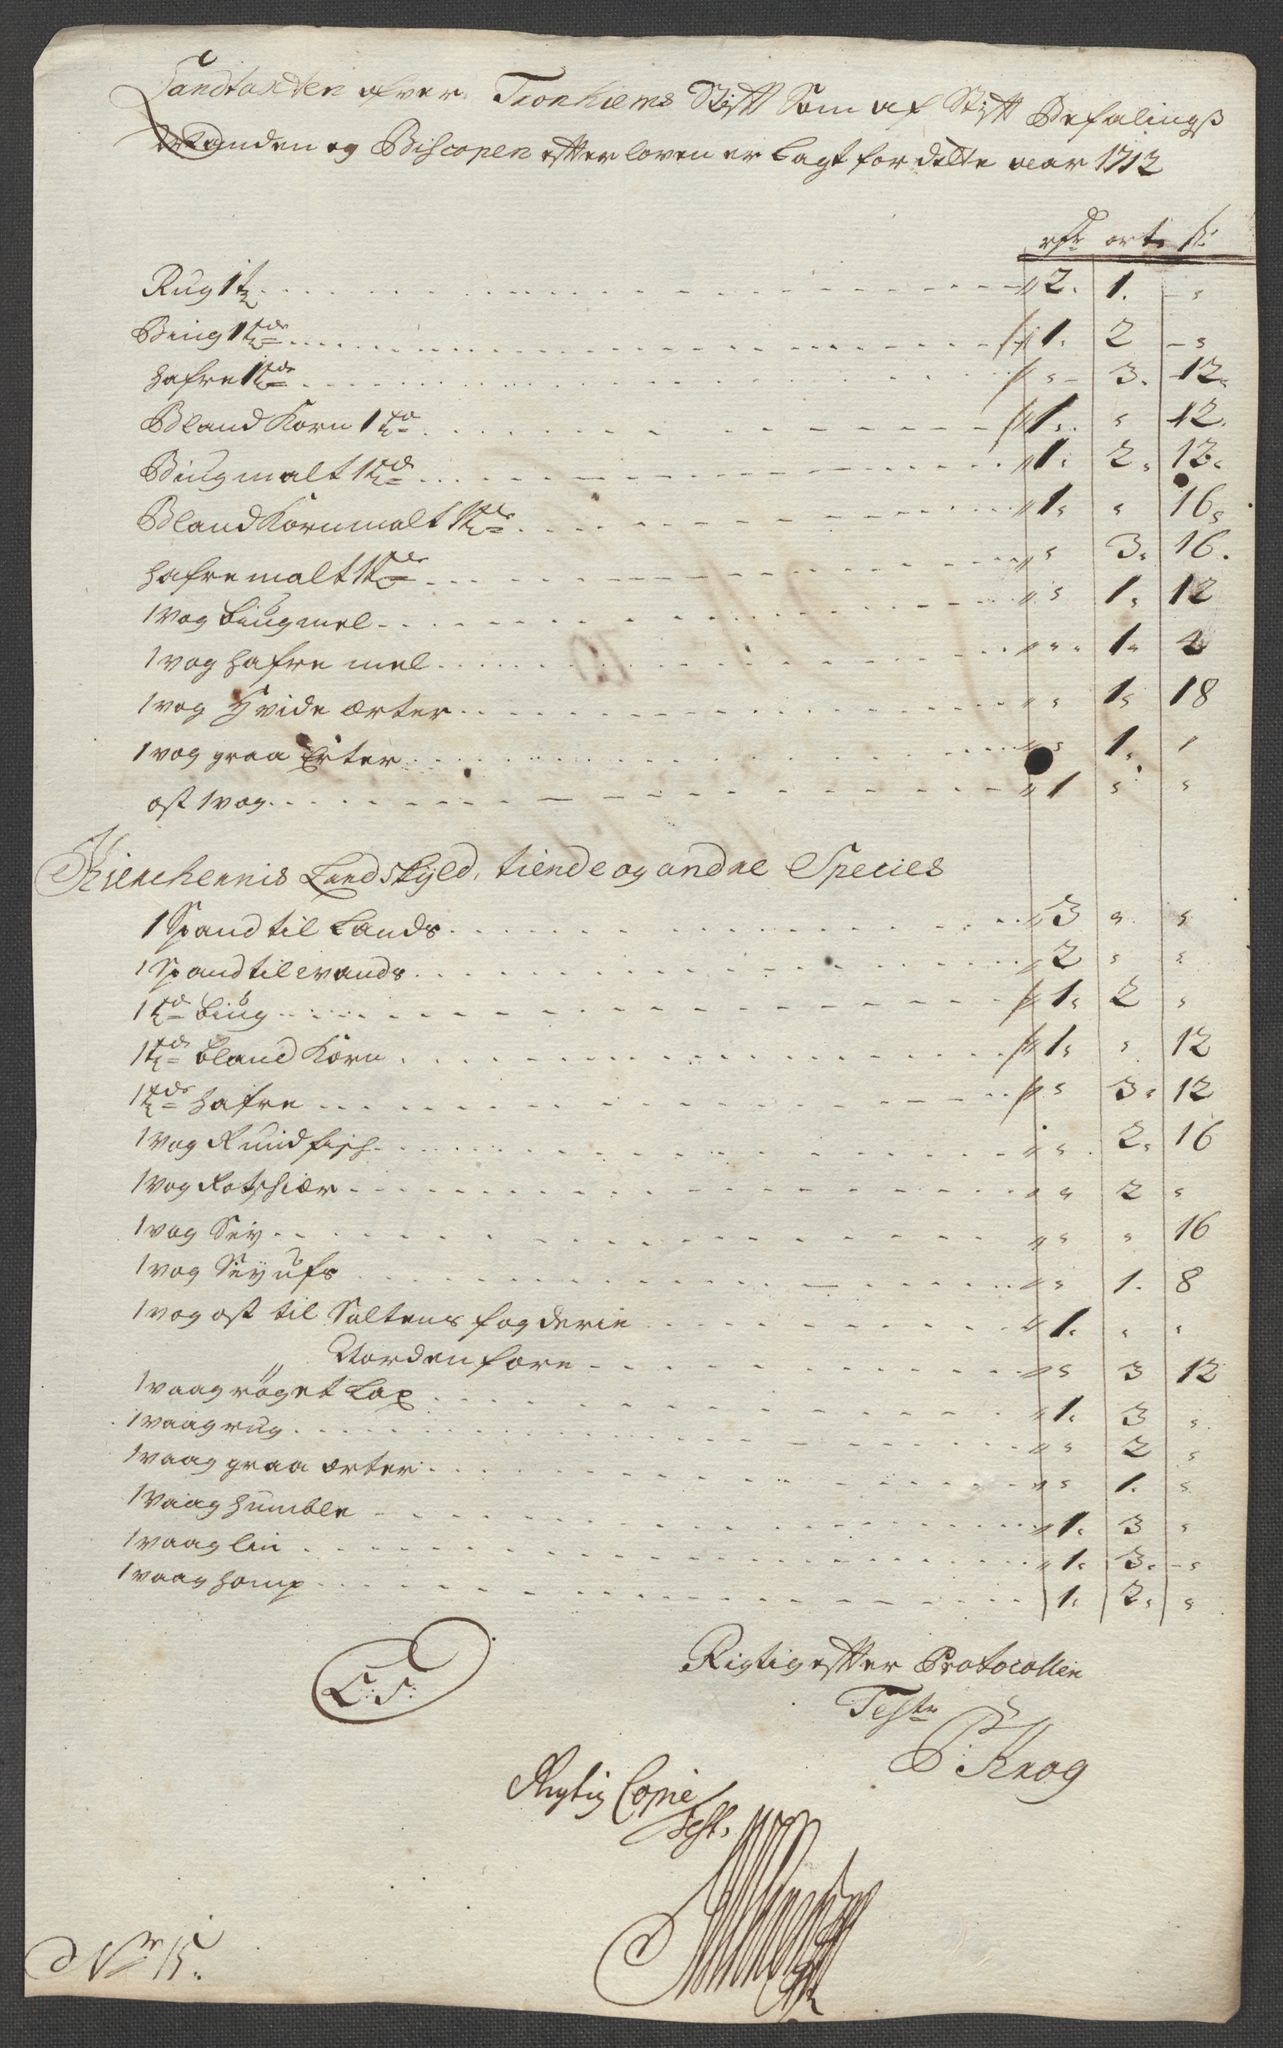 Landtaxten ofver Tronhiems Stift Som af Stift Befalings
Manden og Biscopen efter loven er lagt for dette aar 1712
rdr ort s
Rug 1 td 2. 1. "
Biug 1 tde 1. 2 "
hafre 1 tde " 3. 12
Bland Korn 1 td 1. " 12.
Biug malt 1 td 1. 2. 12.
Bland Korn malt 1 tde 1. " 16
hafre malt 1 tde " 3. 16.
1 vog biug mel " 1. 12
1 vog hafre mel " 1. 4
1 vog Hvide ærter " 1. 18
1 vog graa Erter " 1.
ost 1 vog 1 " "
Kierchernis Landskyld, tiende og andre Species
1 Spand til Lands 3 " "
1 Spand til vands 2 " "
1 td biug 1. 2 "
1 tde bland Korn 1. " 12
1 tde hafre " 3. 12
1 vog Rundfisch " 2. 16
1 vog Rotschiær " 2 "
1 vog Sey " " 16
1 vog Seyufs " 1. 8
1 vog ost til Saltens fogderie 1. " "
Norden fore " 3 12
1 vaag røget Lax 1. 3 "
1 vaag rug " 2 "
1 vaag graa ærter " 1. "
1 vaag humble 1. 3 "
1 vaag lin 1. 3. "
1 vaag hamp 1. 2. "
L: S:
Rigtig efter Protocollen
Teste
P: Krog
Rigtig Copie
Test.
No 15.